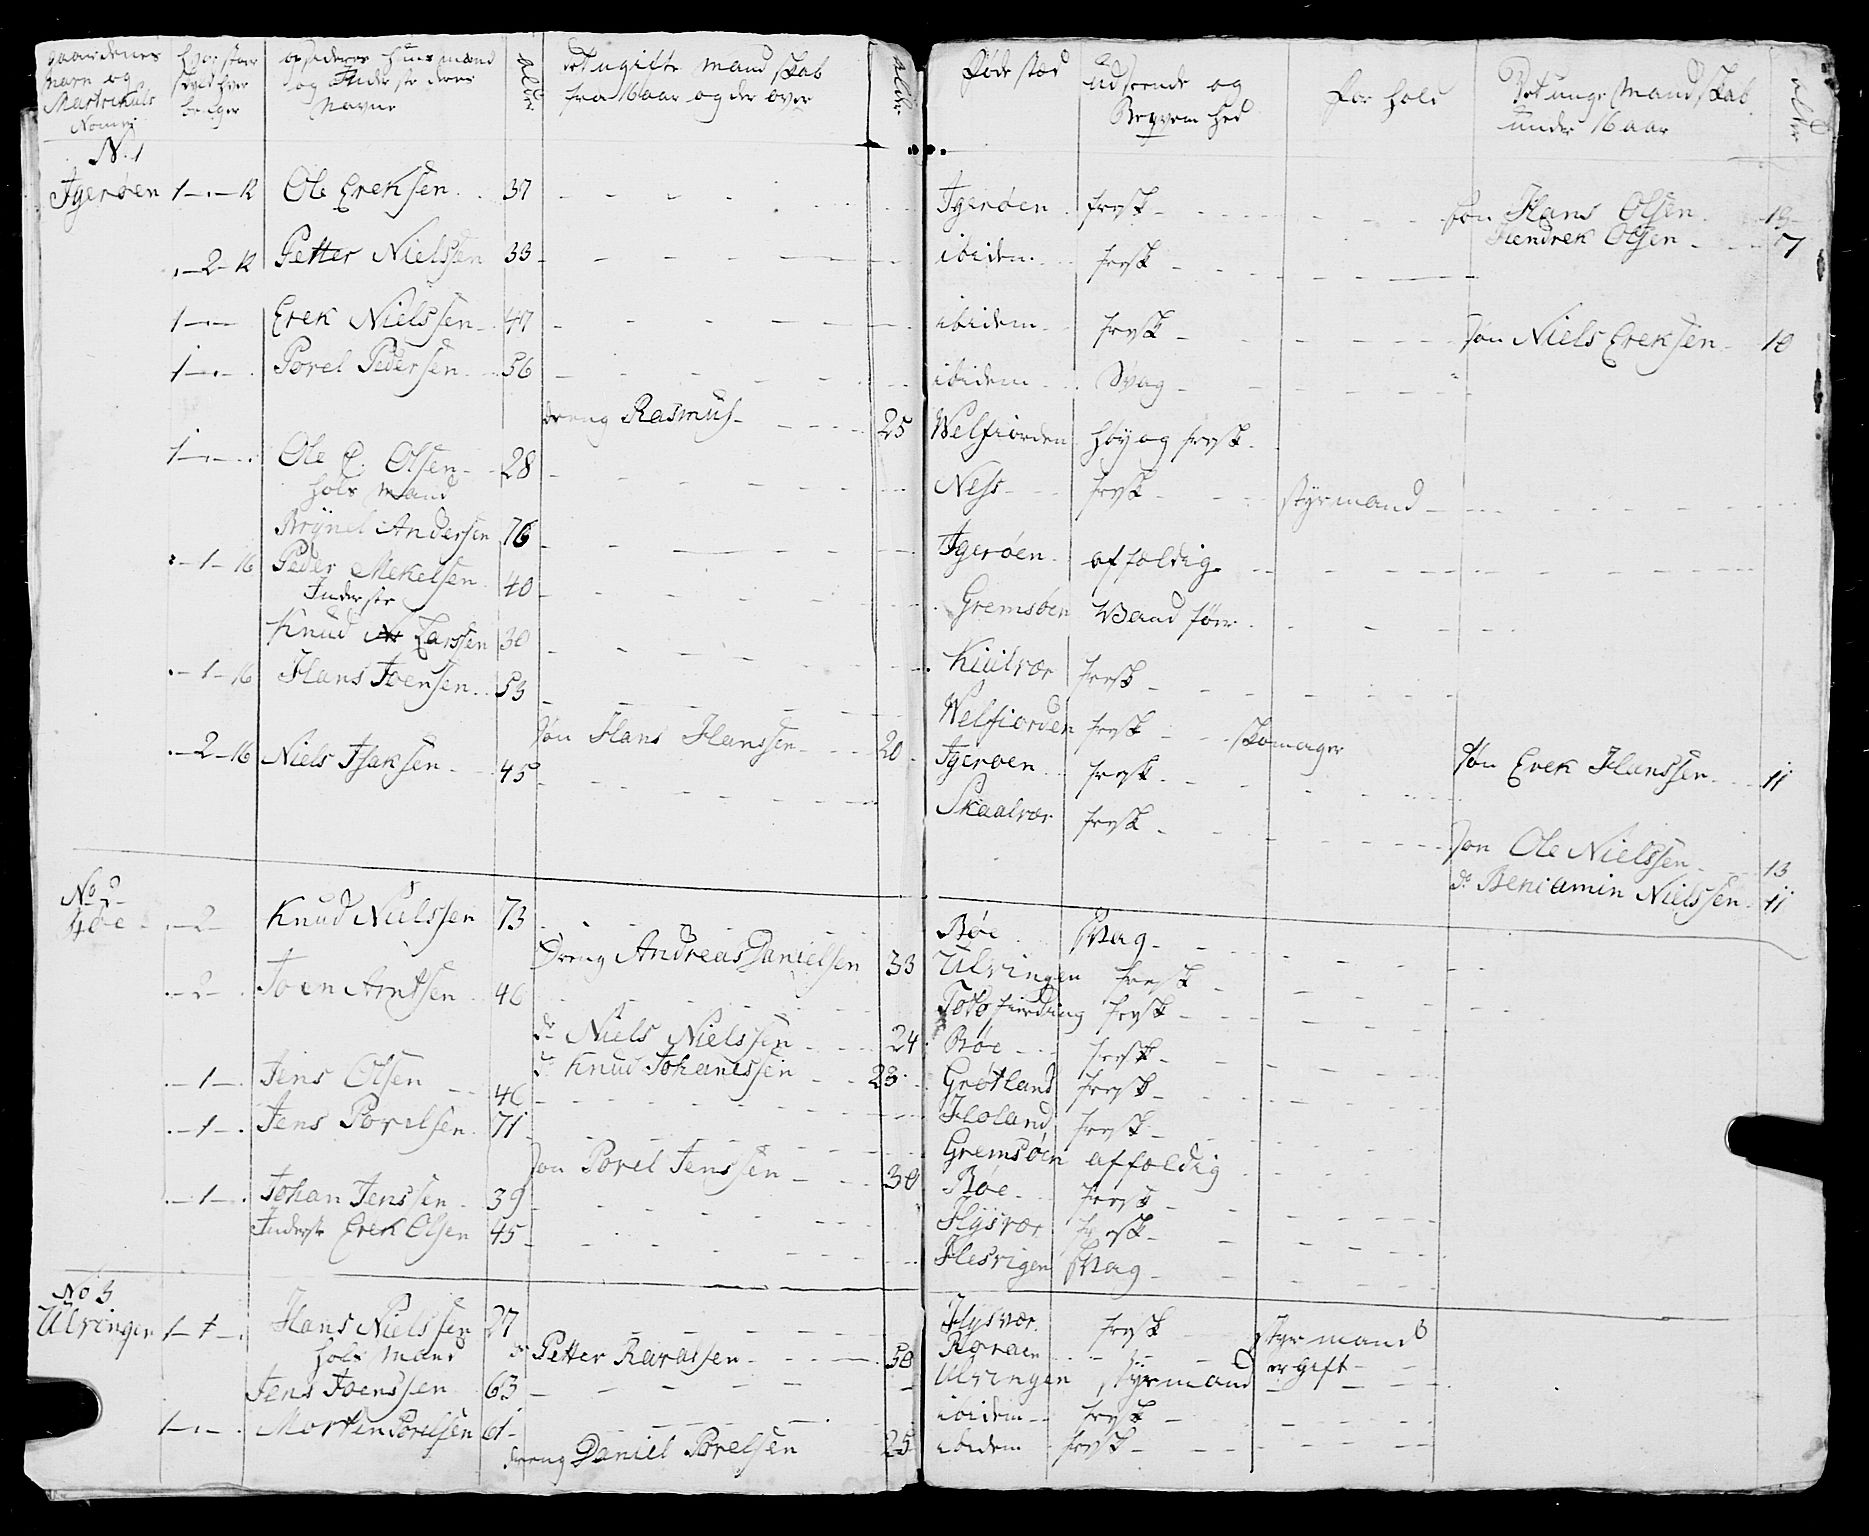 gaardenes Navn og Martrikuls Nomer
hvor stor sved hver bruger
opsidere huusmænd og Inderste deres Navne
alder
det ugifte mandskab fra 16 aar og der over
alder
føde stæd
udseende og Beqvemhed
forhold
Det unge mandskab under 16 aar
alder
N. 1
Igerøen 1 - . - K Ole Ereksen 37 Igerøen fersk søn Hans Olsen 13
Hendrek Olsen 7
. - 2 - K Petter Nielssen 33 ibidem fersk
1 - . - Erek Nielssen 47 ibidem fersk søn Niels Ereksen 10
1 - . - Porel Pedersen 56 ibidem Svag
dreng Rasmus 25 Welfiorden høy og fersk
1 - . - Ole P. Olsen 28 Ness fersk styrmand
hols mand
Brÿnel Andersen 76 Igerøen affoldig
. - 1 - 16 Peder Mekelsen 40 Gremsøen Vand føer
Inderste
Knud Larssen 30 Kiulvær fersk
. - 1 - 16 Hans Joensen 53 Welfiorden fersk skomager
søn Hans Hanssen 20 Igerøen fersk søn Erek Hanssen 11
. - 2 - 16 Niels Isaksen 45 Skaalvær fersk
søn Ole Nielssen 13
do Beniamin Nielssen 11
No 2
Bøe . - 2 - Knud Nielssen 73 Bøe svag
Dreng Andreas Danielsen 33 Ulvingen fersk
. - 2 - . Joen Arntsen 46 Toto fierding fersk
do Niels Nielssen 24 Bøe fersk
do Knud Johanessen 23 Grøtland fersk
. - 1 - . Jens Olsen 46 Holand fersk
. - 1 - . Jens Porelsen 71 Gremsøen affoldig
søn Porel Jenssen 30 Bøe fersk
. - 1 - . Johan Jenssen 39 Hÿsvær fersk
Inderste Erek Olsen 45 Hesvigen svag
No 3
Ulvingen 1 - 1 - . Hans Nielssen 27 Hysvær fersk styrmand
hols mand do Petter Rarassen 50 er gift
Jens Joenssen 63 Ulvingen styrmand
1 - . - . Morten Porelsen 61 ibidem fersk
dreng Daniel Porelsen 25 ibidem fersk